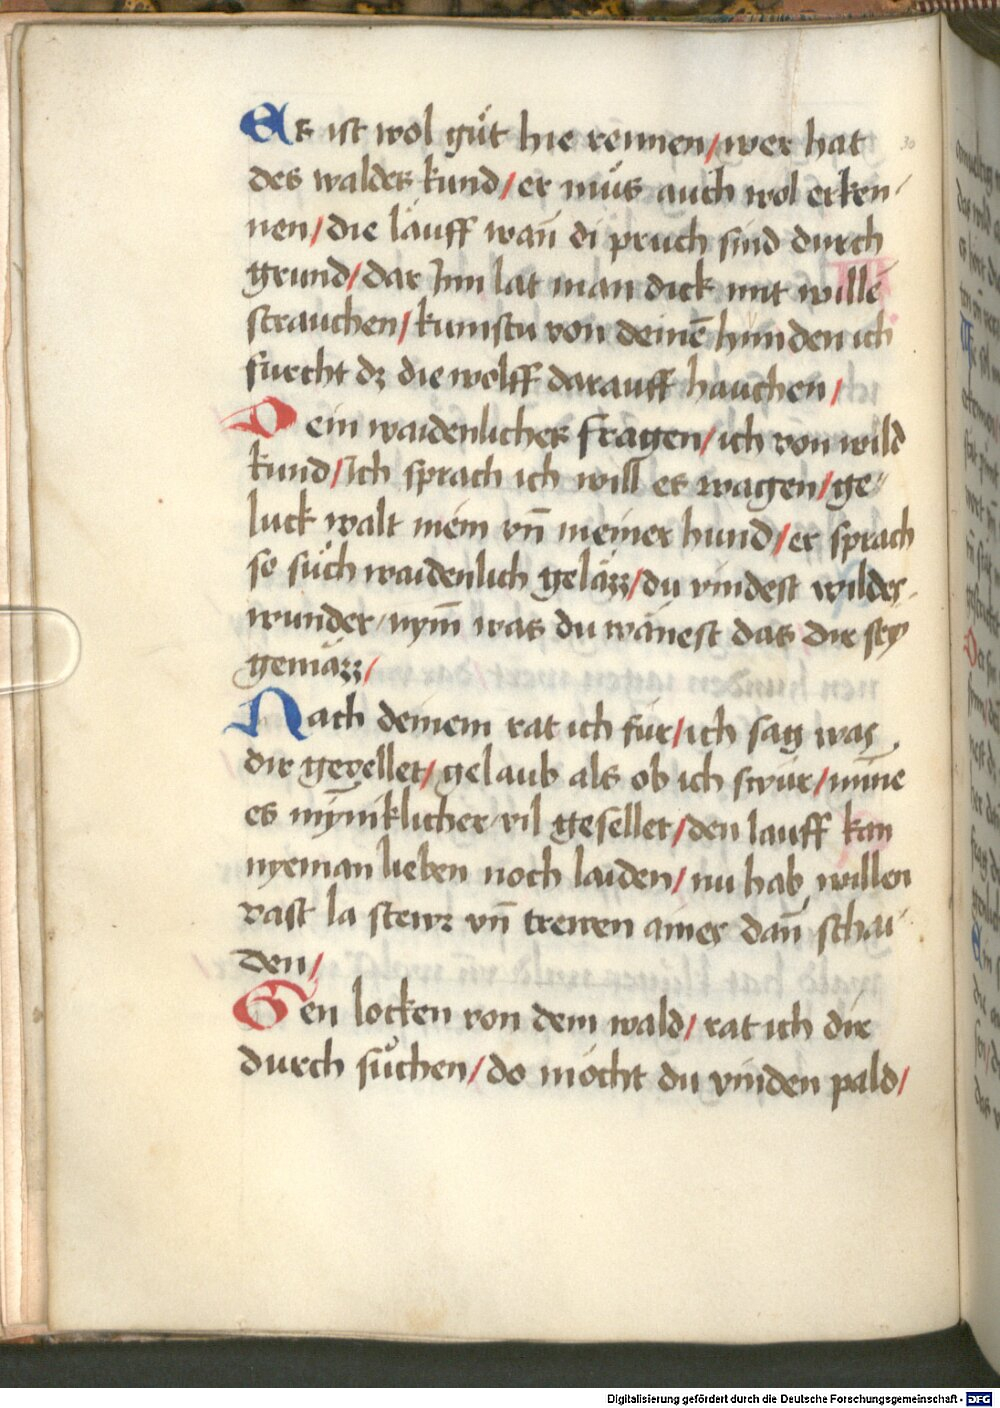 Es ist wol gůt hie rennen/wer hat
des waldes kund/er můs auch wol erken-
nen/die läuff wan̄ di pruch sind durch
grund/dar Jnn lat man dick mit willē
strauchen/kumstu von deinē hunden ich
furcht dz die wolff darauff hauchen/
Dein waidenlicher fragen/ich von wild
kund/Ich sprach ich will es wagen/ge-
luck walt mein vn̄ meiner hund/er sprach
so sůch waidenlich geläzz/du vindest wildes
wunder/nym̄ was du wänest das dir sey
gemäzz/
Nach deinem rat ich für/ich sag was
dir gevellet/gelaub als ob ich swür/mīne
es mȳniklicher vil gesellet/den lauff kan
nyeman lieben noch laiden/nu hab willen
vast la stewr vn̄ trewen ainer dan̄ schai-
den/
Gen locken von dem wald/rat ich dir
durch sůchen/do mȯcht du vinden pald/
Digitalisierung gefördert durch die Deutsche Forschungsgemeinschaft - DFG